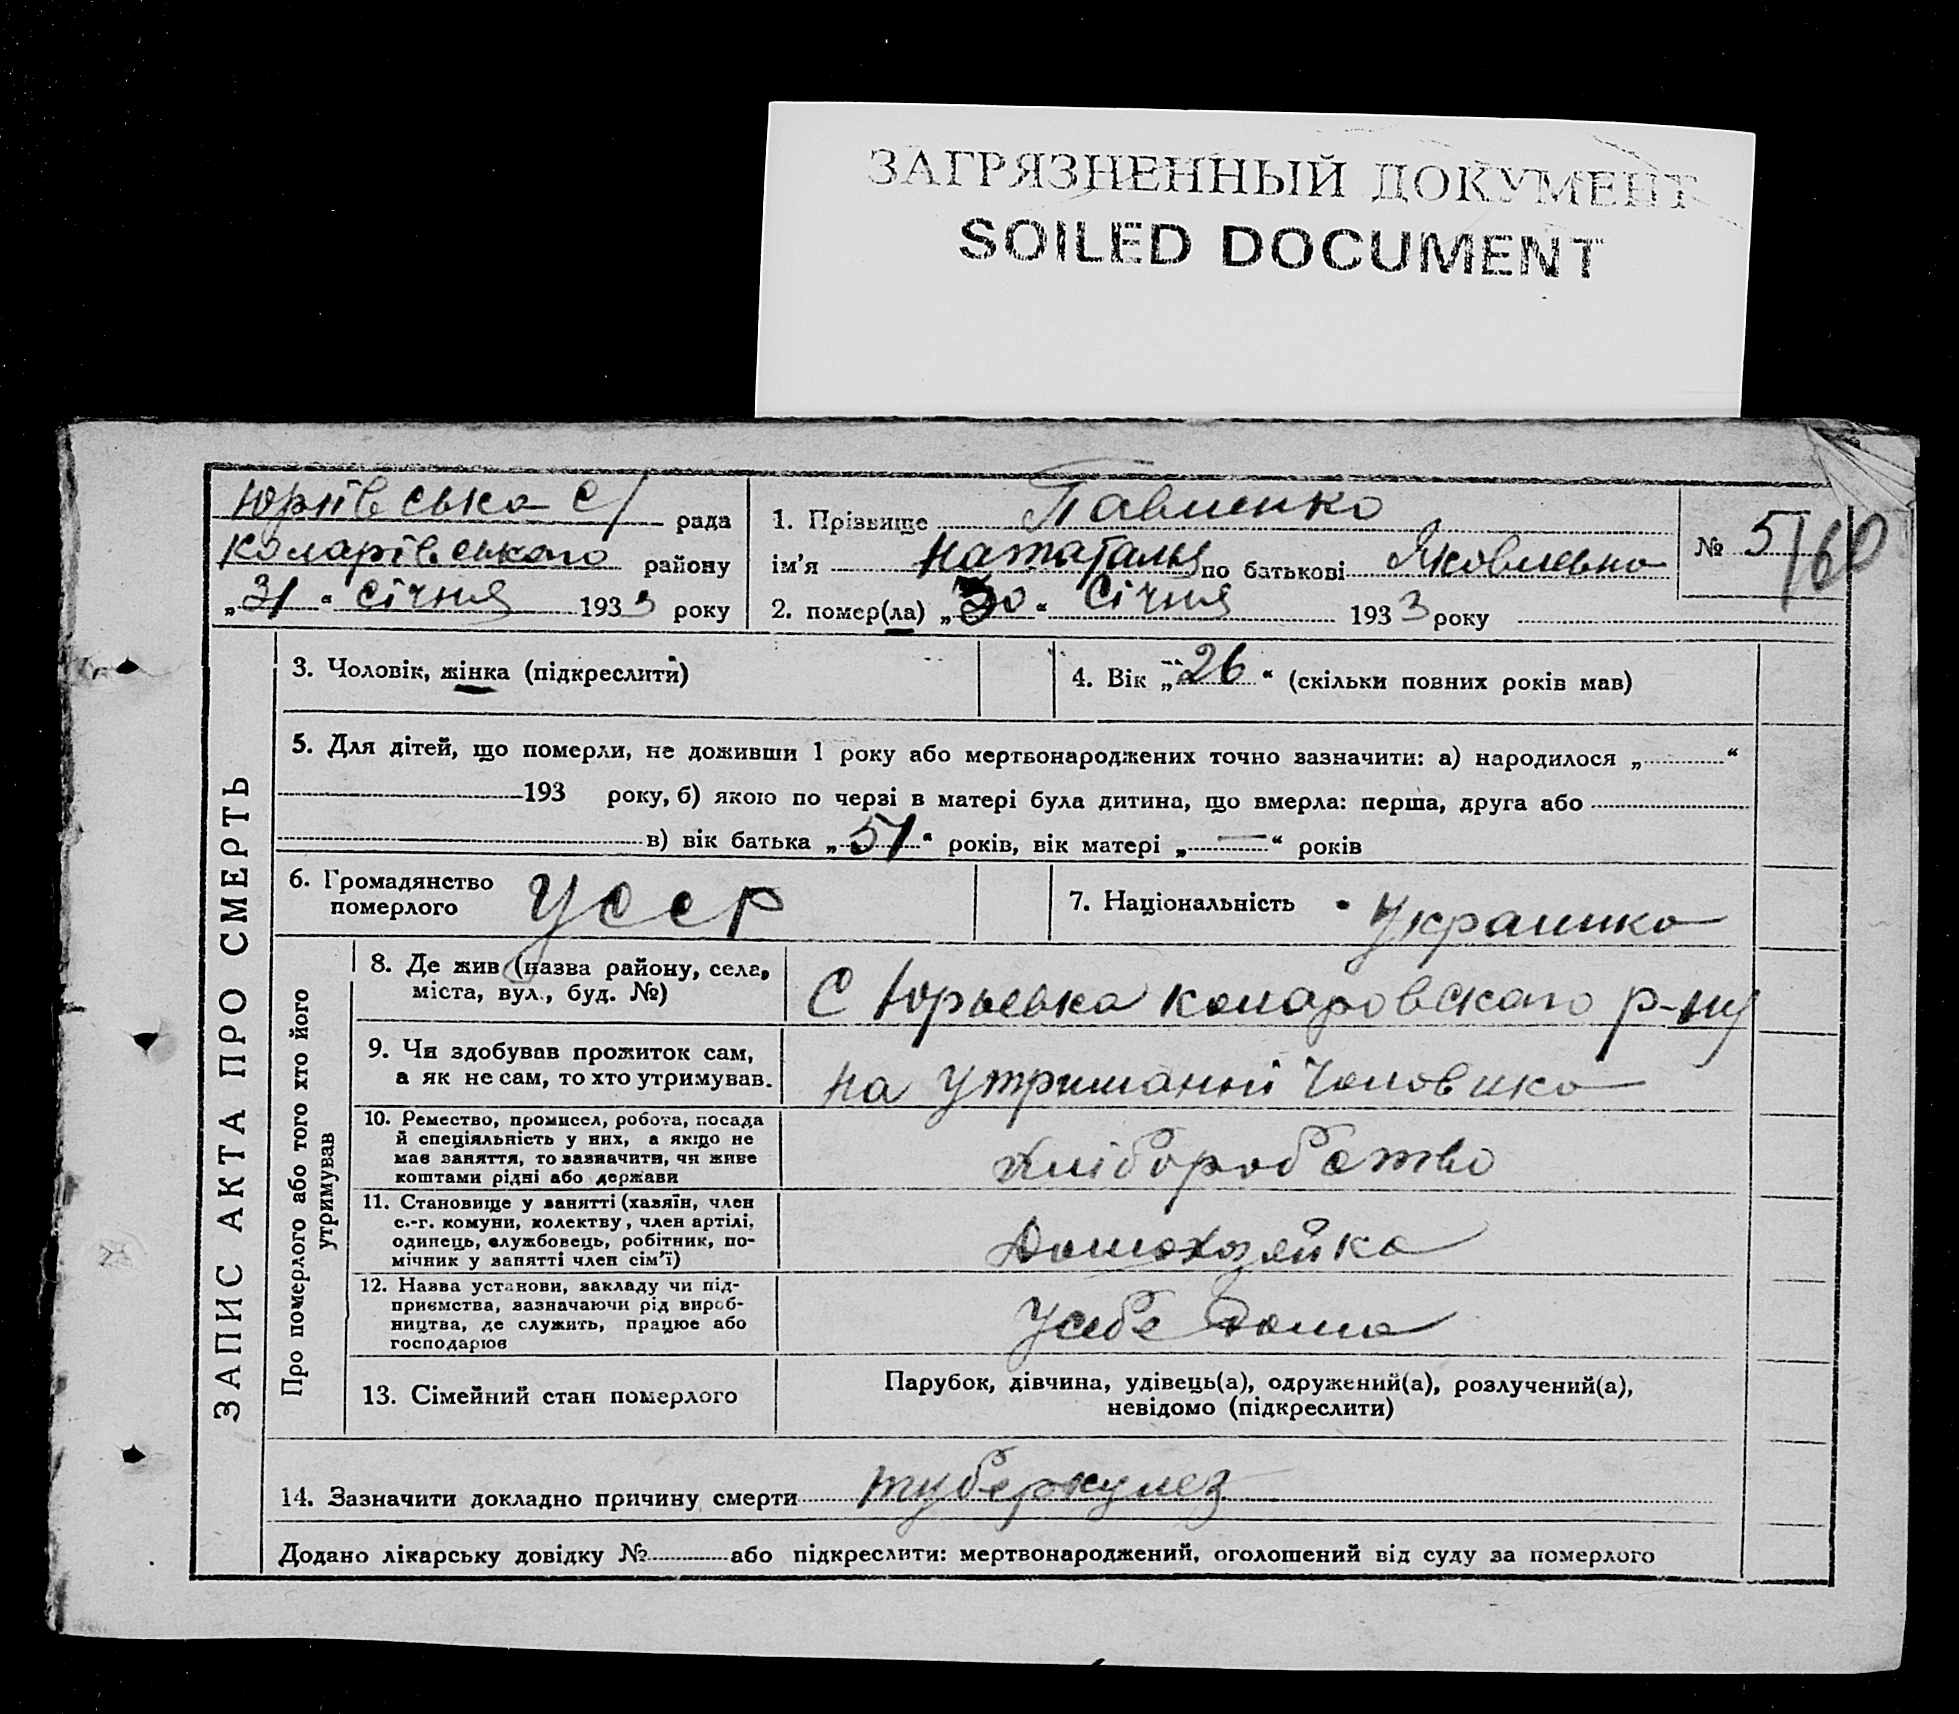 ЗАГРЯЗНЕННЫЙ ДОКУМЕНТ
SOILED DOCUMENT
Юріївська с/ рада
Коларівського району
„31“ Січня 1933 року
1. Прізвище Павленко
ім'я Нататалья по батькові Яковлевна
2. помер(ла) „30“ Січня 1933 року
№ 5/60
ЗАПИС АКТА ПРО СМЕРТЬ
3. Чоловік, жінка (підкреслити)
4. Вік „26“ (скільки повних років мав)
5. Для дітей, що померли, не доживши 1 року або мертвонароджених точно зазначити: а) народилося „ “
193 року, б) якою по черзі в матері була дитина, що вмерла: перша, друга або
в) вік батька „51“ років, вік матері „—“ років
6. Громадянство
померлого
УССР
7. Національність Украинка
Про померлого або того хто його
утримував
8. Де жив (назва району, села,
міста, вул., буд. №)
С Юрьевка Коларовскаго р-ну
9. Чи здобував прожиток сам,
а як не сам, то хто утримував.
на утриманні Чоловика
10. Ремество, промисел, робота, посада
й спеціяльність у них, а якщо не
мав заняття, то зазначити, чи живе
коштами рідні або держави
Хліборобство
11. Становище у занятті (хазяїн, член
с.-г. комуни, колективу, член артілі,
одинець, службовець, робітник, по-
мічник у занятті член сім'ї)
Домохозяйка
12. Назва установи, закладу чи під-
приємства, зазначаючи рід вироб-
ництва, де служить, працює або
господарює
У себе дома
13. Сімейний стан померлого
Парубок, дівчина, удівець(а), одружений(а), розлучений(а),
невідомо (підкреслити)
14. Зазначити докладно причину смерти туберкулез
Додано лікарську довідку № або підкреслити: мертвонароджений, оголошений від суду за померлого